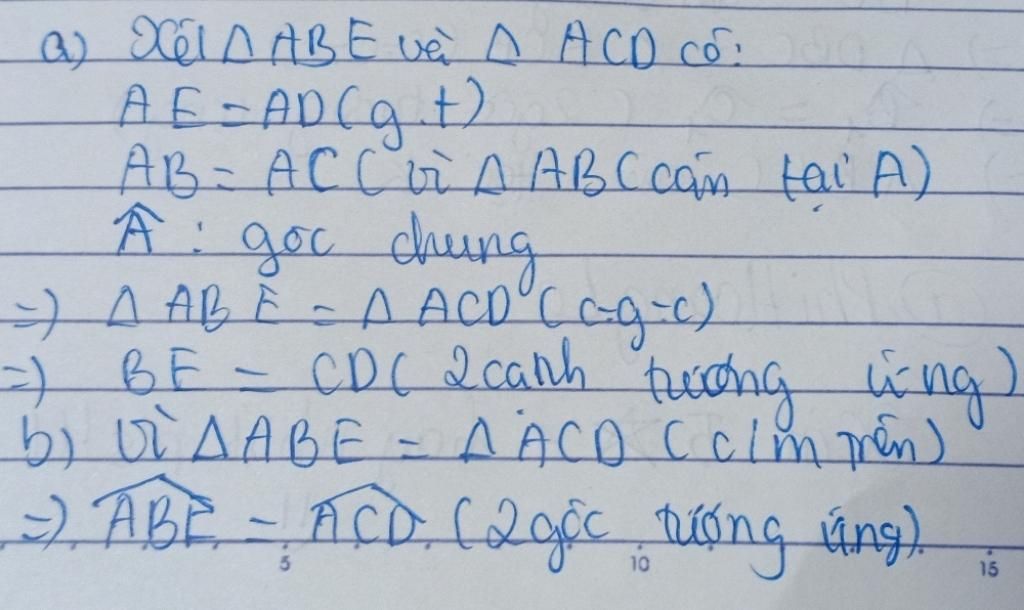 a) Xét Δ ABE và Δ ACD có:
AE = AD (g.t)
AB = AC (vì Δ ABC cân tại A)
Â : góc chung
=) Δ ABE = Δ ACD (c-g-c)
=) BE = CD (2 cạnh tương ứng)
b) Vì Δ ABE = Δ ACD (c/m trên)
=) \widehat{ABE} = \widehat{ACD} (2 góc tương ứng)
5 10 15